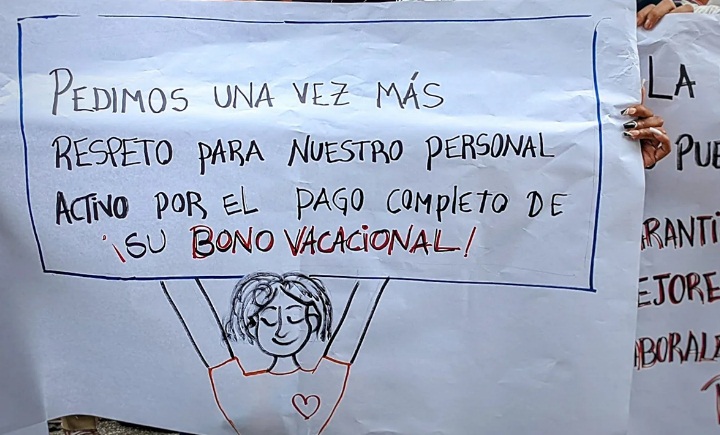 PEDIMOS UNA VEZ MÁS
RESPETO PARA NUESTRO PERSONAL
ACTIVO POR EL PAGO COMPLETO DE
¡SU BONO VACACIONAL!
LA